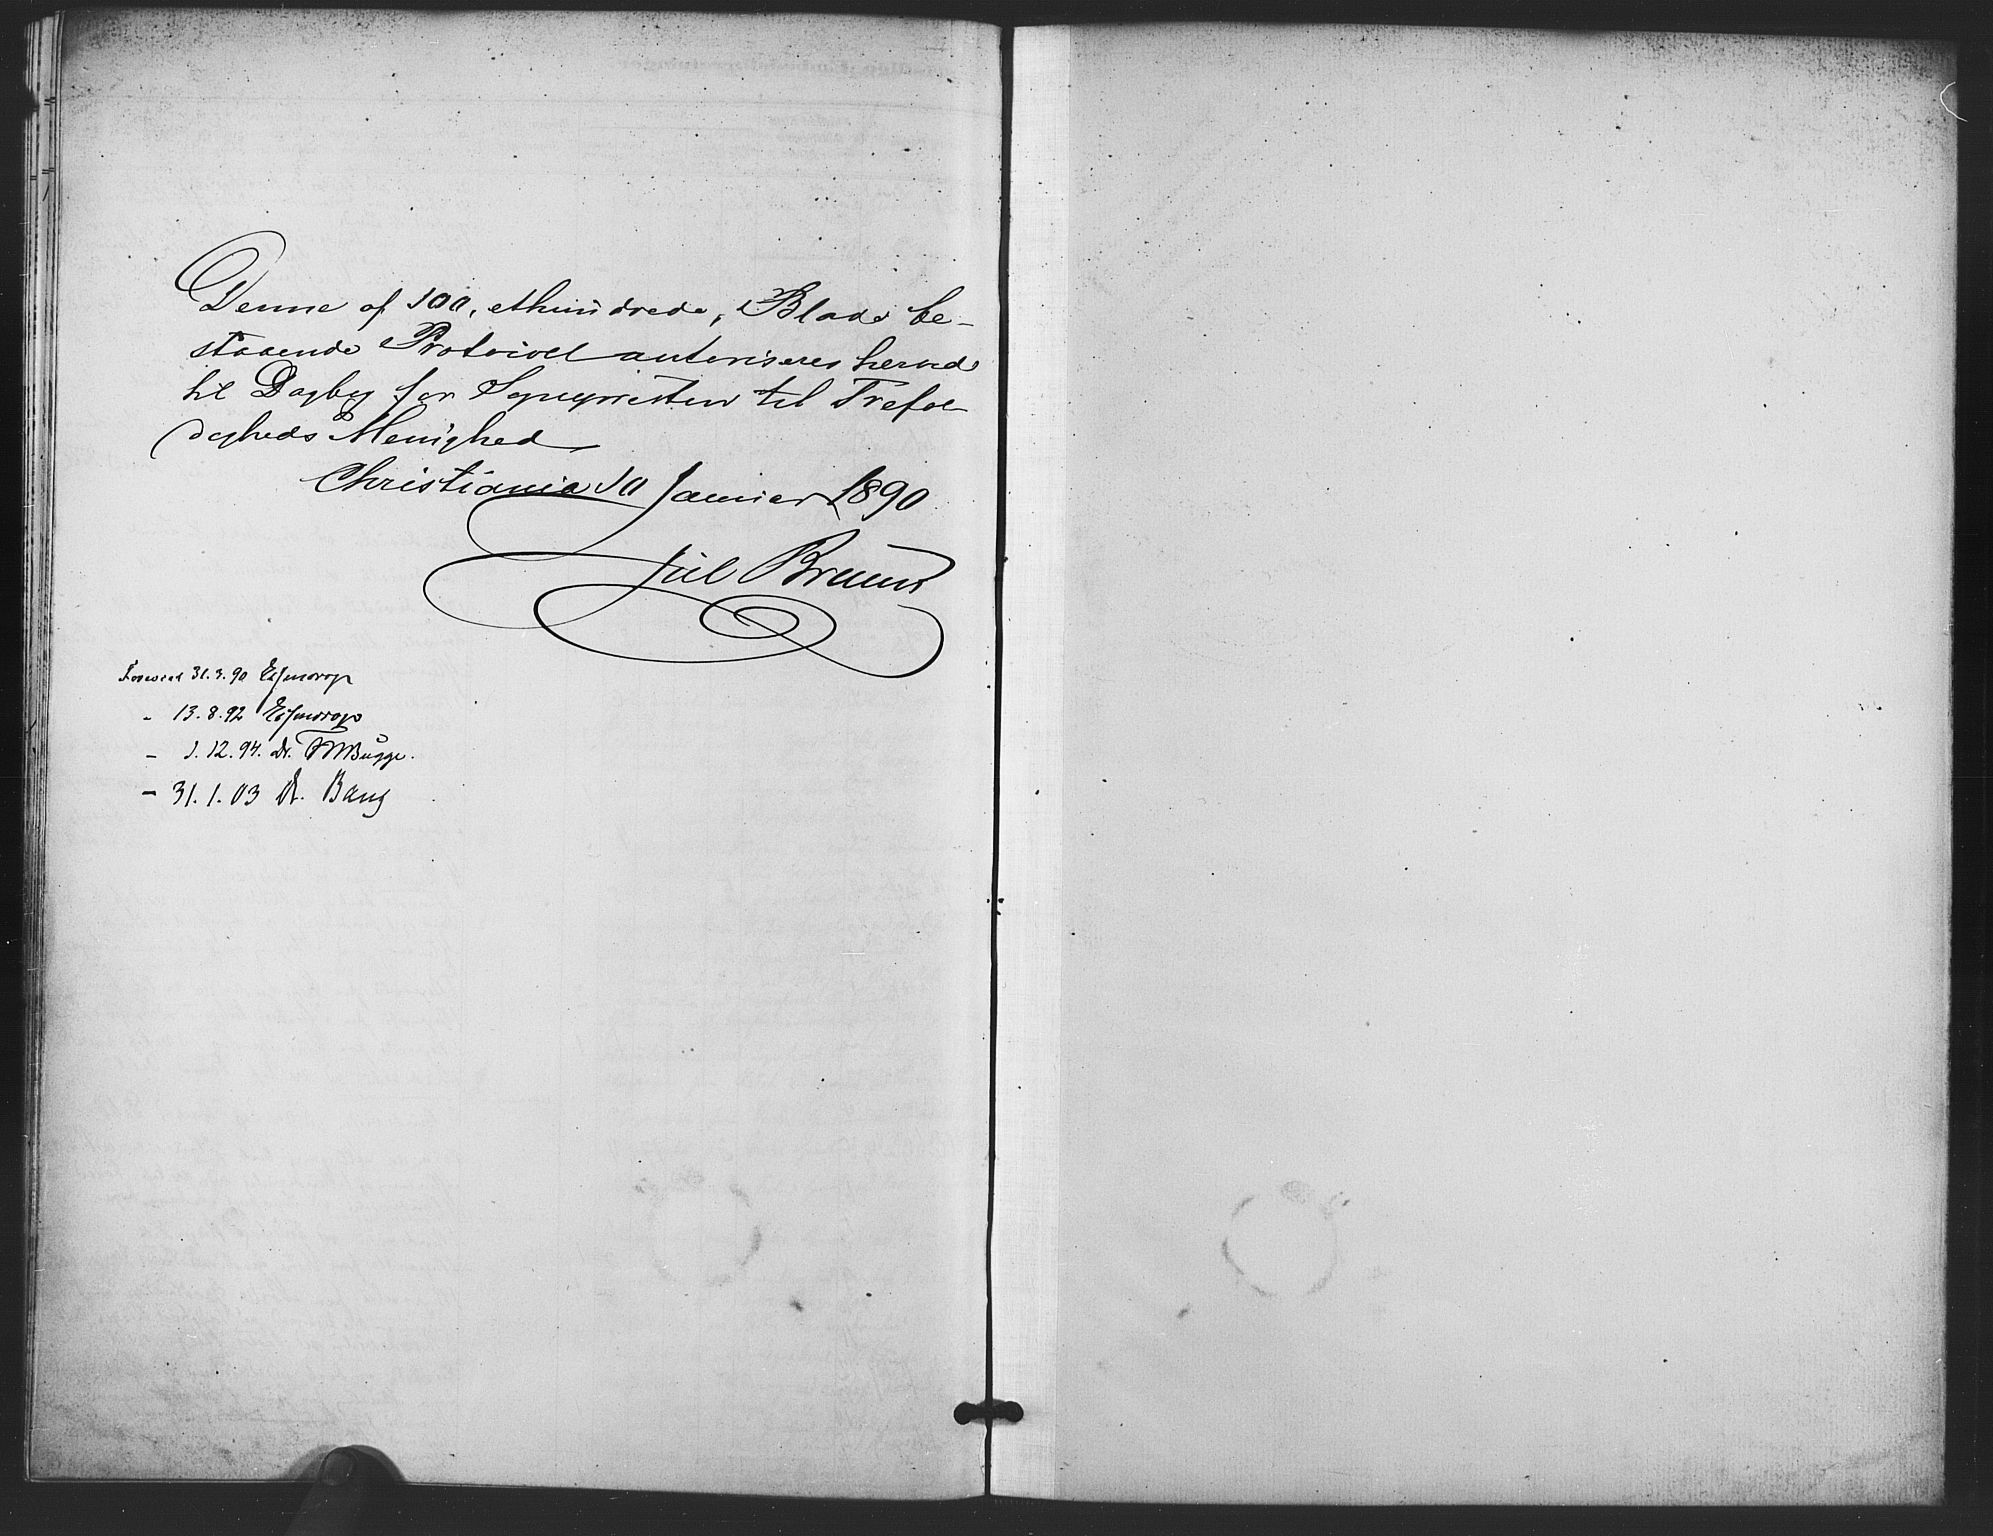 Denne af 100, ethundrede, Blade be-
staaende Protocol autoriseres herved
til Dagbog for Sognepresten til Trefol-
digheds Menighed
Christiania 10 Januar 1890
Jul Bruun
Forevist 31.3.90 Essendrop
" 13.8.92 Essendrop
" 1.12.94. Dr. FWBugge.
" 31.1.03 Dr. Bang